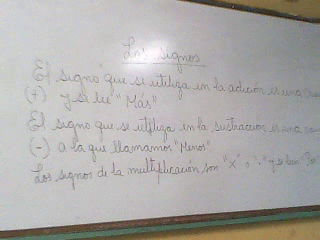 Los signos
El signo que se utiliza en la adición es una
(+) y se lee "Más"
El signo que se utiliza en la sustracción es una
(-) a la que llamamos "Menos"
Los signos de la multiplicación son "x" o "·" y se lee "Por